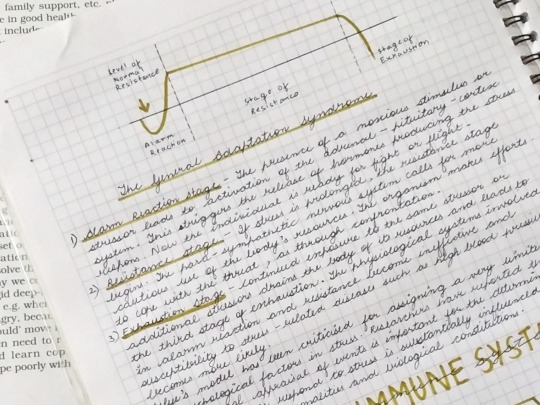 family support, etc.
in good health
include
Level of
Normal
Resistance
Alarm
Reaction
Stage of
Resistance
Stage of
Exhaustion
The General Adaptation Syndrome
1) Alarm Reaction Stage - The presence of a noxious stimulus or
stressor leads to activation of the adrenal - pituitary - cortex
system. This triggers the release of hormones producing the stress
respons. Now the individual is ready for fight or flight.
2) Resistance Stage - If stress is prolonged, the resistance stage
begins. The para-sympathetic nervous system calls for more
cautious use of the body's resources. The organism makes efforts
to cope with the threat, as through confrontation.
3) Exhaustion Stage - continued exposure to the same stressor or
additional stressors drains the body of its resources and leads to
the third stage of exhaustion. The physiological systems involved
in alarm reaction and resistance become ineffective and
susceptibility to stress-related diseases such as high blood pressure
becomes more likely.
model has been criticised for assigning a very limited
psychological factors in stress. Researchers have reported that
appraisal of events is important for the
respond to stress is substantially influenced
and biological constitutions.
IMMUNE SYST
e.g. when
angry, beca
ould' move
n need to
d learn cop
pe poorly with